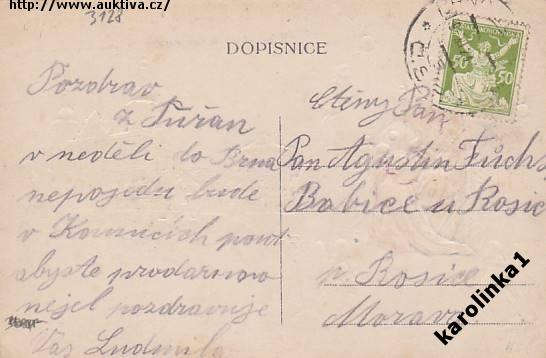 http://www.auktiva.cz/
3128
DOPISNICE
Pozdrav
z Tuřan
v neděli do Brna
nepojedu bude
v Kounicích pouť
abyste prodarmo
nejel pozdravuje
Vás Ludmila
Ctěný Pán
Pan Agustin Fuchs
Babice u Rosic
p. Rosice
Morava
50
karolinka1